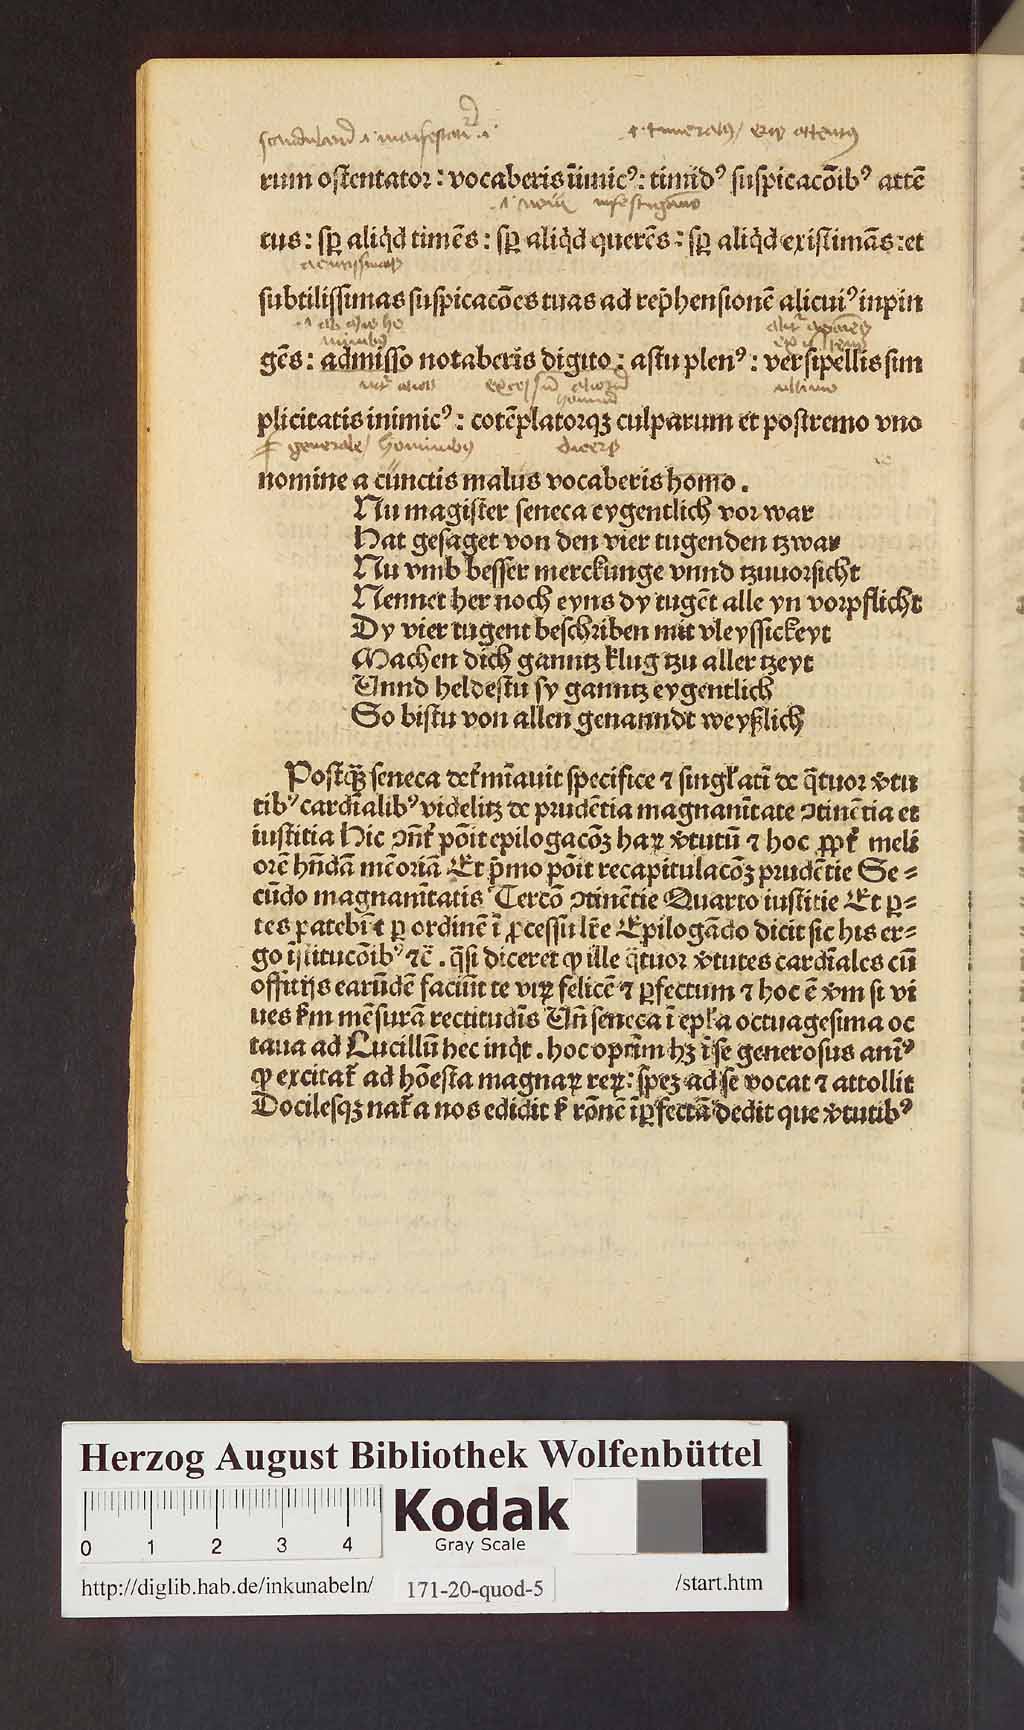 rum ostentator : vocaberis īimicꝰ : timidꝰ suspicacōibꝰ attē
tus : sꝑ aliq̇d timēs : sꝑ aliq̇d querēs : sꝑ aliq̇d existimās : et
subtilissimas suspicacōes tuas ad rep̄hensionē alicuiꝰ inpin
gēs : admisso notaberis digito : astu plenꝰ : versipellis sim
plicitatis inimicꝰ : cotēplatorqꝫ culparum et postremo vno
nomine a cūnctis malus vocaberis homo .
Nu magister seneca eygentlich vor war
Hat gesaget von den vier tugenden tzwar
Nu vmb besser merckunge vnnd tzuuorsicht
Nennet her noch eyns dy tugēt alle yn vorpflicht
Dy vier tugent beschriben mit vleyssickeyt
Machen dich ganntz klug tzu aller tzeyt
Vnnd heldestu sy ganntz eygentlich
So bistu von allen genanndt weyßlich
Postq̄ꝫ seneca det̄mīauit specifice ⁊ singl̄atī de q̄tuor v̄tu
tibꝰ cardīalibꝰ videlitꝫ de prudētia magnanītate ↄtinētia et
iustitia Hic ↄn̄t̄ pōit epilogacōꝫ haꝝ v̄tutū ⁊ hoc ꝓpt̄ meli
orē hn̄dā mēoriā Et p̄mo pōit recapitulacōꝫ prudētie Se⸗
cūdo magnanītatis Tercō ↄtinētie Quarto iustitie Et ꝑ⸗
tes patebūt ꝑ ordinē ī ꝓcessu lr̄e Epilogādo dicit sic his er⸗
go īstitucōibꝰ ⁊c̄ . q̄si diceret ꝙ ille q̄tuor v̄tutes cardīales cū
offitijs earūdē faciūt te viꝝ felicē ⁊ ꝑfectum ⁊ hoc ē v̄m si vi
ues s̄m mēsurā rectitudīs Vn̄ seneca ī epl̄a octuagesima oc
taua ad Lucillū hec inq̇t . hoc optīm hꝫ ī se generosus anīꝰ
ꝙ excitat̄ ad hōesta magnaꝝ reꝝ : speꝫ ad se vocat ⁊ attollit
Docilesqꝫ nat̄a nos edidit ⁊ rōnē īꝑfectā dedit que v̄tutibꝰ
Herzog August Bibliothek Wolfenbüttel
0 1 2 3 4
Kodak
Gray Scale
http://diglib.hab.de/inkunabeln/ 171-20-quod-5 /start.htm